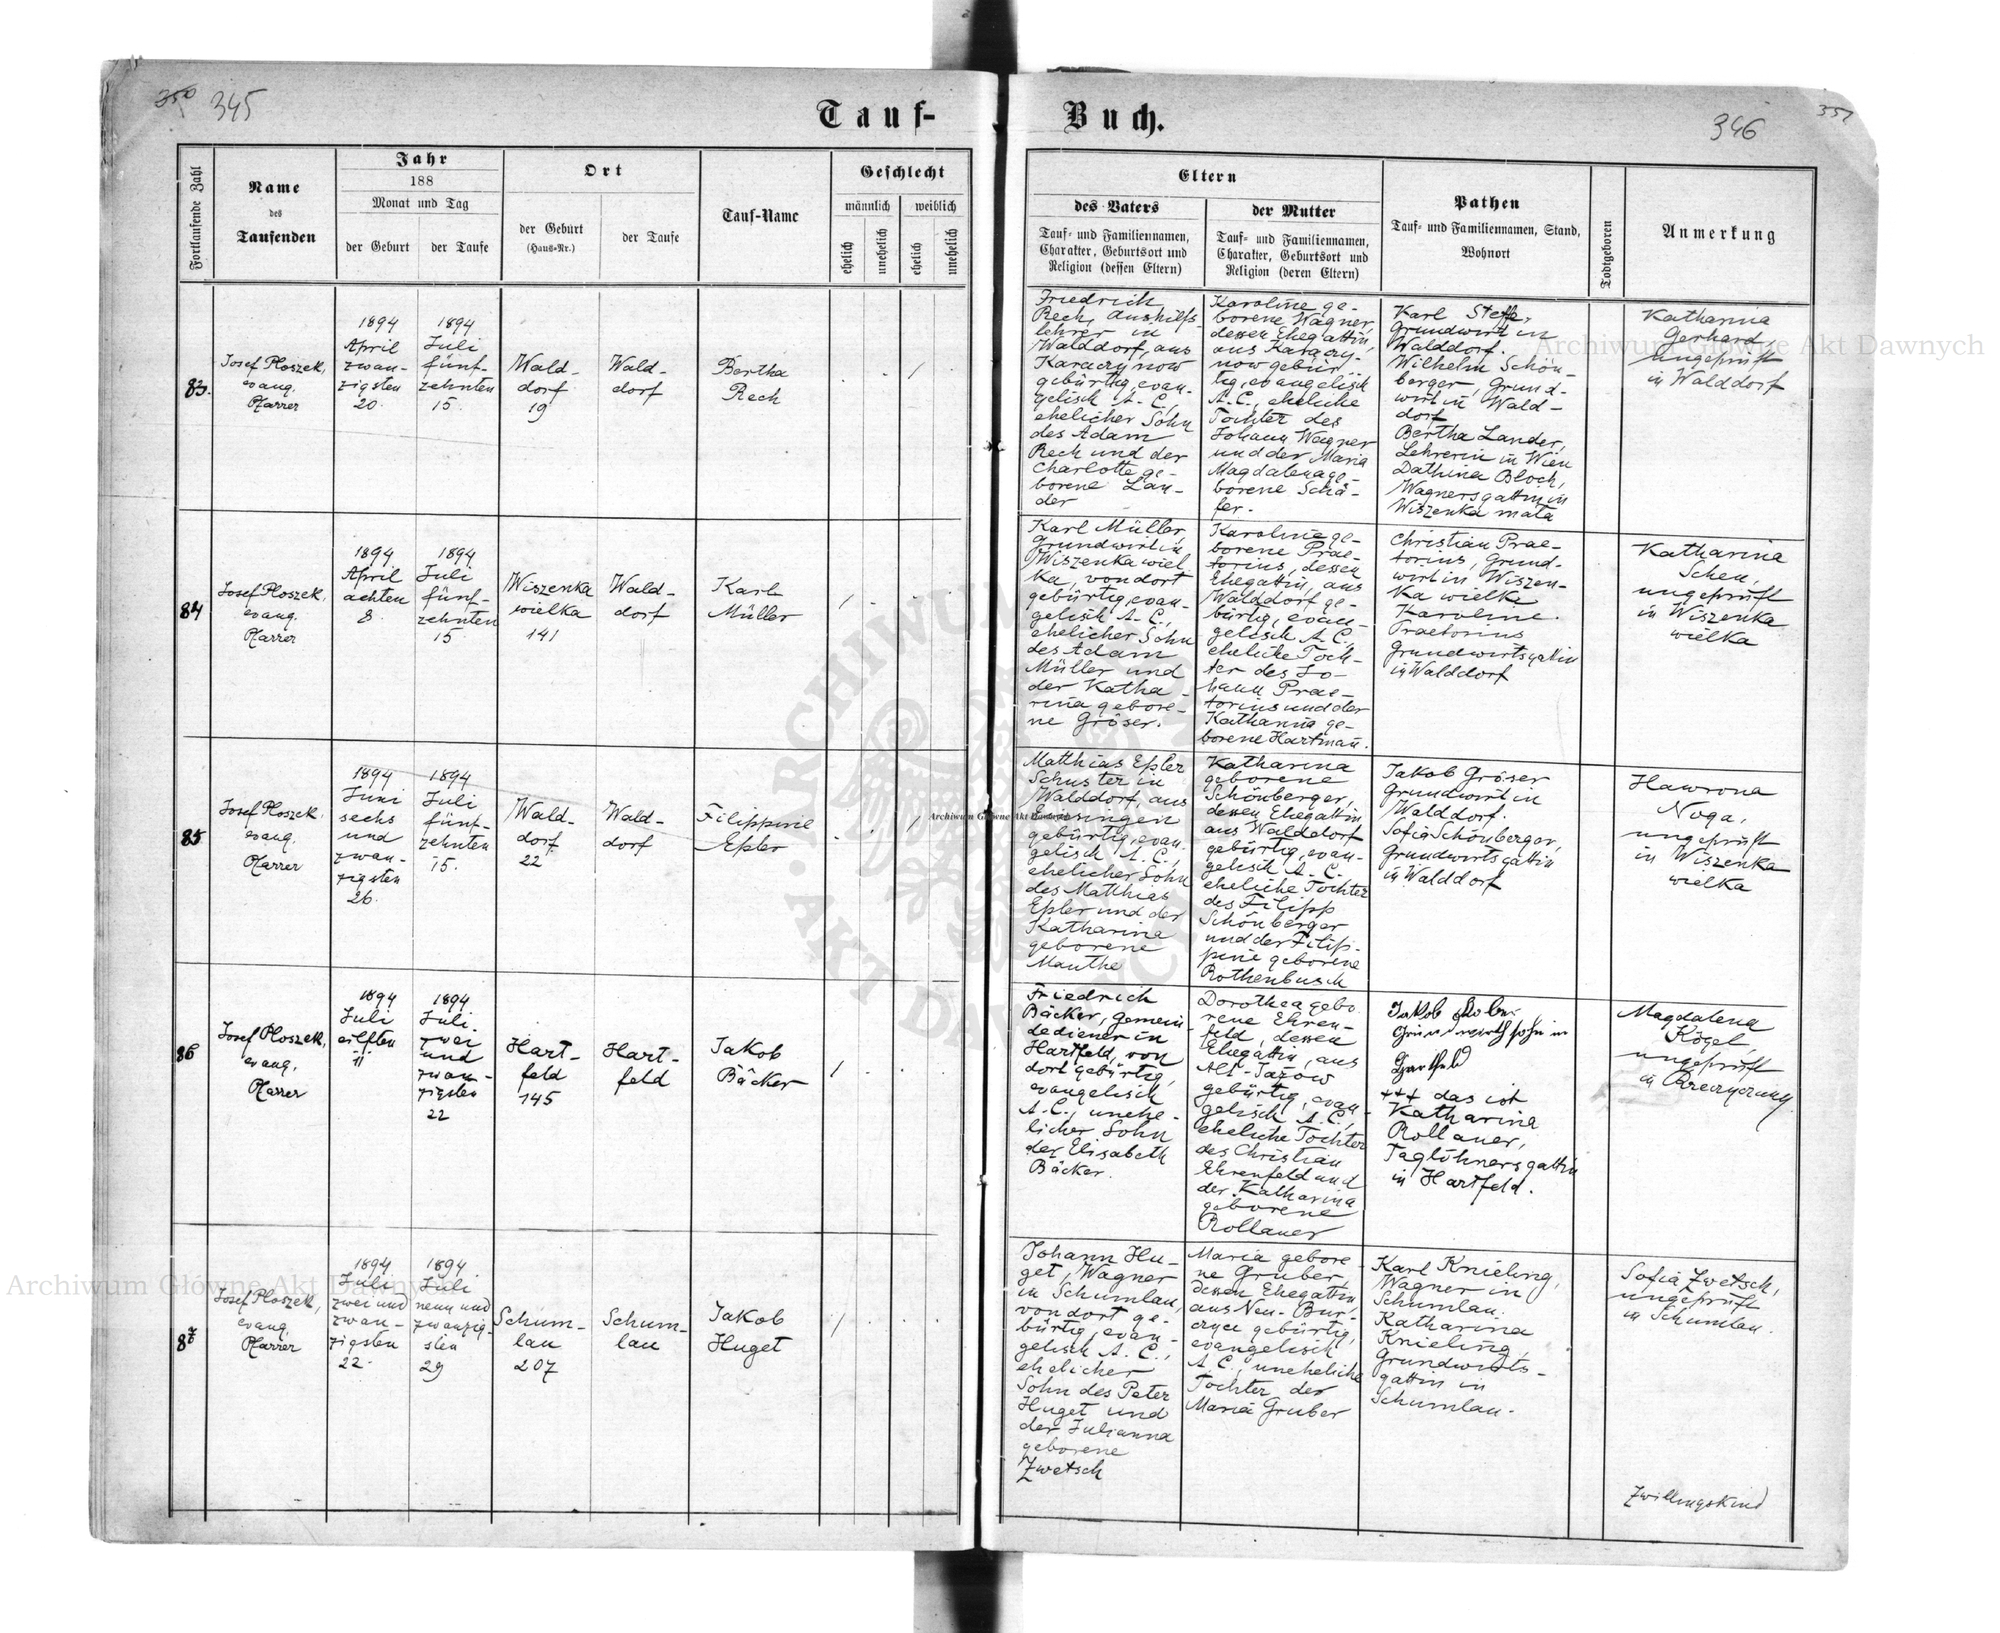 350 345
Tauf-
Buch.
346
351
Fortlaufende Zahl
Name
des
Taufenden
Jahr
188
Monat und Tag
der Geburt
der Taufe
Ort
der Geburt
(Haus-Nr.)
der Taufe
Tauf-Name
Geschlecht
männlich
weiblich
ehelich
unehelich
ehelich
unehelich
Eltern
des Vaters
Tauf- und Familiennamen,
Charakter, Geburtsort und
Religion (dessen Eltern)
der Mutter
Tauf- und Familiennamen,
Charakter, Geburtsort und
Religion (deren Eltern)
Pathen
Tauf- und Familiennamen, Stand,
Wohnort
Todtgeboren
Anmerkung
83.
Josef Ploszek,
evang.
Pfarrer
1894
April
zwan-
zigsten
20.
1894
Juli
fünf-
zehnten
15.
Wald-
dorf
19
Wald-
dorf
Bertha
Rech
/
Friedrich
Rech, Aushilfs-
lehrer in
Walddorf, aus
Karaczynow
gebürtig, evan-
gelisch A. C.,
ehelicher Sohn
des Adam
Rech und der
Charlotte ge-
borene Lan-
der
Karoline ge-
borene Wagner,
dessen Ehegattin,
aus Karaczy-
now gebür-
tig, evangelisch
A. C., eheliche
Tochter des
Johann Wagner
und der Maria
Magdalena ge-
borene Schä-
fer.
Karl Steffe,
Grundwirt in
Walddorf.
Wilhelm Schön-
berger, Grund-
wirt in Wald-
dorf
Bertha Lander,
Lehrerin in Wien
Bloch,
Wagnersgattin in
Wiszenka mała
Katharina
Gerhard
ungeprüft
in Walddorf
84
Josef Ploszek,
evang.
Pfarrer
1894
April
achten
8.
1894
Juli
fünf-
zehnten
15.
Wiszenka
wielka
141
Wald-
dorf
Karl
Müller
/
Karl Müller
Grundwirt in
Wiszenka wiel-
ka, von dort
gebürtig, evan-
gelisch A. C.,
ehelicher Sohn
des Adam
Müller und
der Katha-
rina gebore-
ne Gröser.
Karoline ge-
borene Prae-
torius, dessen
Ehegattin, aus
Walddorf ge-
bürtig, evan-
gelisch A. C.,
eheliche Toch-
ter des Jo-
hann Prae-
torius und der
Katharina ge-
borene Hartman.
Christian Prae-
torius, Grund-
wirt in Wiszen-
ka wielka
Karoline
Praetorius
Grundwirtsgattin
in Walddorf
Katharina
Scheu,
ungeprüft
in Wiszenka
wielka
85
Josef Ploszek,
evang.
Pfarrer
1894
Juni
sechs
und
zwan-
zigsten
26.
1894
Juli
fünf-
zehnten
15.
Wald-
dorf
22
Wald-
dorf
Filippine
Eßler
/
Matthias Eßler
Schuster in
Walddorf, aus
Einsingen
gebürtig, evan-
gelisch A. C.,
ehelicher Sohn
des Matthias
Eßler und der
Katharina
geborene
Manthe
Katharina
geborene
Schönberger,
dessen Ehegattin
aus Walddorf
gebürtig, evan-
gelisch A. C.
eheliche Tochter
des Filipp
Schönberger
und der Filip-
pine geborene
Rothenbusch
Jakob Gröser
Grundwirt in
Walddorf.
Sofia Schönberger,
Grundwirtsgattin
in Walddorf
Hawrona
Noga,
ungeprüft
in Wiszenka
wielka
86
Josef Ploszek,
evang.
Pfarrer
1894
Juli
eilften
11
1894
Juli
zwei
und
zwan-
zigsten
22
Hart-
feld
145
Hart-
feld
Jakob
Bäcker
/
Friedrich
Bäcker, Gemein-
dediener in
Hartfeld, von
dort gebürtig,
evangelisch
A. C., unehe-
licher Sohn
der Elisabeth
Bäcker.
Dorothea gebo-
rene Ehren-
feld, dessen
Ehegattin, aus
Alt-Jazow
gebürtig, evan-
gelisch A. C.,
eheliche Tochter
des Christian
Ehrenfeld und
der Katharina
geborene
Rollauer
Jakob
Grundwirthsohn in
Hartfeld
+++ das ist
Katharina
Rollauer,
Taglöhnersgattin
in Hartfeld.
Magdalena
Kögel,
ungeprüft
in
87
Josef Ploszek,
evang.
Pfarrer
1894
Juli
zwei und
zwan-
zigsten
22.
1894
Juli
neun und
zwanzig-
sten
29
Schum-
lau
207
Schum-
lau
Jakob
Huget
/
Johann Hu-
get, Wagner
in Schumlau,
von dort ge-
bürtig, evan-
gelisch A. C.,
ehelicher
Sohn des Peter
Huget und
der Julianna
geborene
Zwetsch
Maria gebore-
ne Gruber,
dessen Ehegattin
aus Neu-Bur-
czyce gebürtig,
evangelisch
A. C., uneheliche
Tochter der
Maria Gruber
Karl Knieling,
Wagner in
Schumlau.
Katharina
Knieling,
Grundwirts-
gattin in
Schumlau.
Sofia Zwetsch,
ungeprüft
in Schumlau.
Zwillingskind
Archiwum Główne Akt Dawnych
Archiwum Główne Akt Dawnych
Archiwum Główne Akt Dawnych